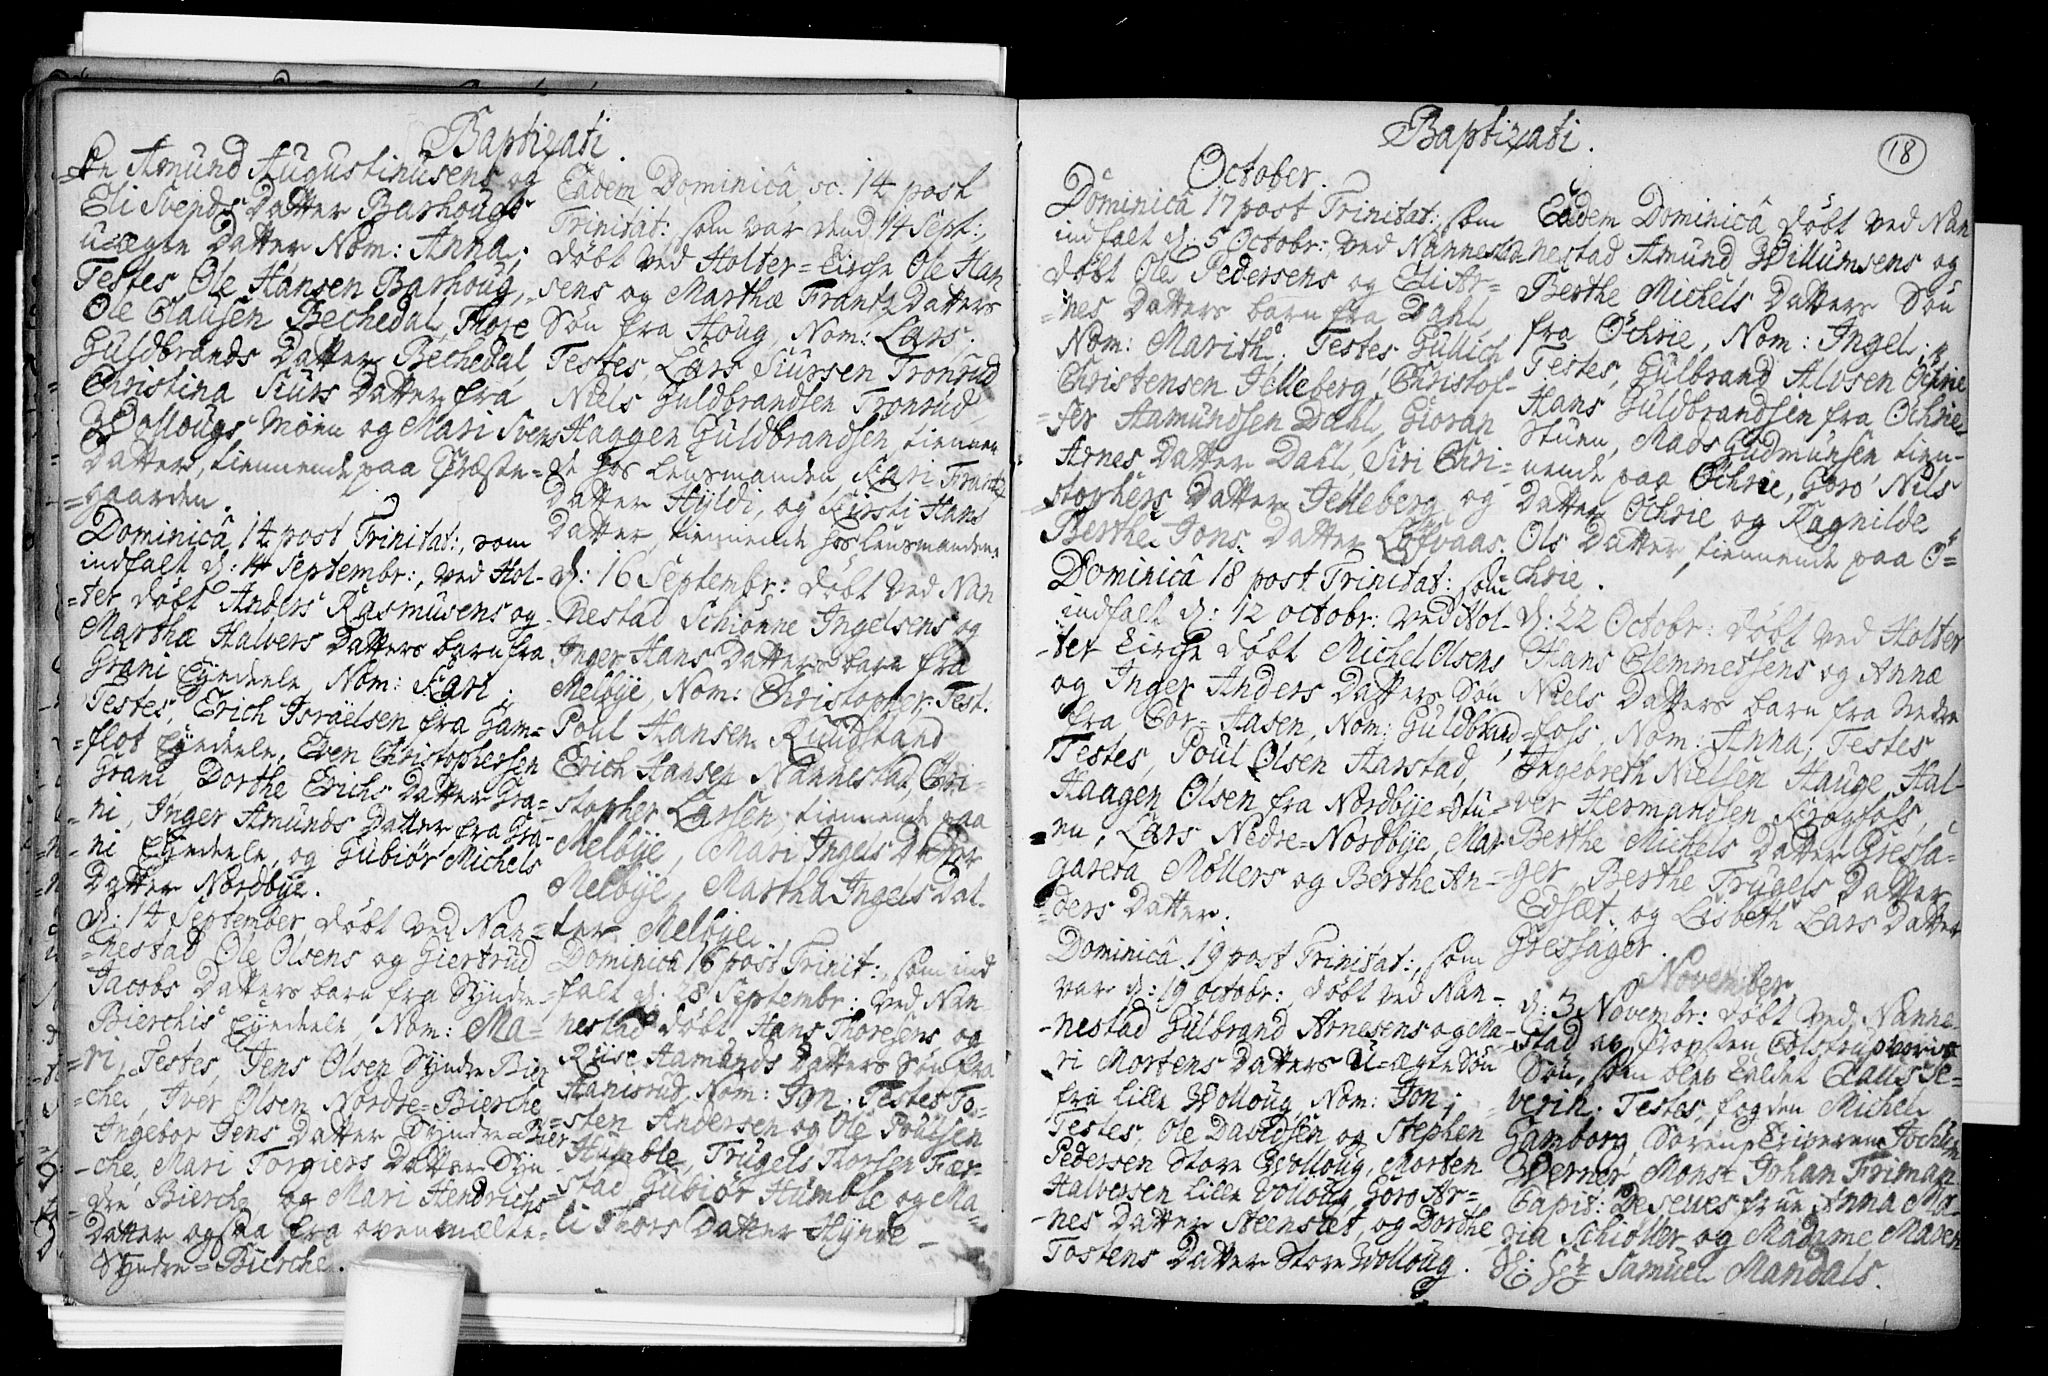 Baptizati.
Amund Augustinusens og
Eli Svends Datter Barhougs
uægte Datter Nom: Anna;
Testes Ole Hansen Barhoug,
Ole Clausen Bechedal, Thore
Guldbrands Datter Bechedal,
Christina Siurs Datter fra
Wollougs Moen og Mari Svens
Datter, tiennende paa Præste=
=gaarden.
Dominicâ 14 post Trinitat:, som
indfalt d: 14 Septembr:, ved Hol-
=ter døbt Anders Rasmusens og
Marthæ Halvers Datters barn fra
Grani Eyedeele Nom: Kari;
Testes, Erich Israelsen fra Gam=
=flot Eyedeele, Even Christophersen
Grani, Dorthe Erichs Datter Gra=
=ni, Inger Amunds Datter fra Gra-
=ni Eyedeele, og Gubiør Michels
Datter Nordbye.
d: 14 September døbt ved Nan=
=nestad Ole Olsens og Giertrud
Jacobs Datters barn fra Syndre
Bierchis Eyedeele Nom: Ma=
=ri, Testes, Jens Olsen Syndre Bier
=che, Iver Olsen Nordre=Bierche
Ingebor Jens Datter Syndre=Bier
-che, Mari Torgiers Datter Syn
=dre Bierche, og Mari Hendrichs
Datter ogsaa fra ovenmælte
Syndre=Bierche.
Eadem Dominicâ, sc: 14 post
Trinitat: som var dend 14 Sept:,
døbt ved Holter=Kirche Ole Han
=sens og Marthæ Frantz Datters
Søn fra Houg, Nom: Lars;
Testes, Lars Siursen Tronrud
Niels Guldbrandsen Tronrud
Haagen Guldbrandsen, tiennen
=de hos Lensmanden, Kari Frantz
Datter Hyldi, og Kirsti Hans
Datter, tiennende hos Lensmanden
d: 16 Septembr: døbt ved Nan
-nestad Schionne Ingelsens og
Inger Hans Datters barn fra
Melbye, Nom: Christopher; Test.
Poul Hansen Ruudstand
Erich Hansen Nannestad, Chri=
=stopher Larsen, tiennende paa
Melbye, Mari Ingels Datter
Melbye, Martha Ingels Dat-
=ter Melbye.
Dominicâ 16 post Trinit:, som ind
=falt d: 28 Septembr: ved Nan-
=nestad døbt Hans Thoresens og
Riise Aamunds Datters Søn fra
Hanisrud, Nom: Jon. Testes To=
=sten Andersen og Ole Poulsen
Humble, Trugels Thorsen Fær-
=stad Gubiør Humble og Ma=
li Thors Datter Hynde
Baptizati.
18
October.
Dominicâ 17 post Trinitat: som
indfalt d: 5 Octobr: ved Nannesta
døbt Ole Pedersens og Eli Ar=
=nes Datters barn fra Dahl,
Nom: Marith. Testes, Gullich
Christensen Jelleberg, Christof-
=fer Aamundsen Dahl, Gioran
Arnes Datter Dahl, Siri Chri=
=stophers Datter Jelleberg og
Berthe Jons Datter Løfvaas.
Dominicâ 18 post Trinitat: som
indfalt d: 12 octobr: ved Hol-
=ter Kirche døbt Michel Olsens
og Inger Anders Datters Søn
fra Cor=Aasen, Nom: Guldbrand
Testes, Poul Olsen Harstad,
Haagen Olsen fra Nordbye=Stu=
=en, Lars Nedre=Nordbye, Mar
gareta Møllers og Berthe An=
=ders Datter.
Dominicâ 19 post Trinitat:, som
var d: 19 octobr:, døbt ved Nan=
-nestad Gulbrand Arnesens og Ma-
=ri Mortens Datters U=ægte Søn
fra Lille Wolloug, Nom: Jon;
Testes, Ole Davidsen og Stephen
Pedersen Store Wolloug, Morten
Halversen Lille Wolloug, Goro Ar=
-nes Datter Steensæt, og Dorthe
Tostens Datter Store Wolloug.
Eadem Dominicâ døbt ved Nan
nestad Amund Willumsens og
Berthe Michels Datters Søn
fra Ochrie, Nom: Ingel;
Testes, Gulbrand Alvsen Ochrie
Hans Guldbrandsen fra Ochrie
Stuen, Mads Gudmunsen tien-
nende paa Ochrie, Goro Nils
Datter Ochrie og Ragnilde
Ols Datter, tiennende paa O=
=chrie.
d: 22 Octobr: døbt ved Holter
Hans Clemmetsens og Annæ
Niels Datters barn fra Nedre
=foss, Nom: Anna; Testes
Ingebreth Nielsen Hauge, Hal-
ver Hermandsen Krogfoss,
Berthe Michels Datter Gressa=
=ger, Berthe Trygels Datter
Edsæt og Lisbeth Lars Datter
Gressager.
November
d: 3 Novembr: døbt ved Nanne-
=stad
Søn, som blev kaldet Claus Se=
=verin. Testes, fogden Michel
Gamborg, Sorenskriveren Jochum
Werner, Monsr Johan Friman
Capit: De Seues frue Anna Ma=
ria Schiøller og Madame Maren
Sl: Hr: Samuel Mandals.